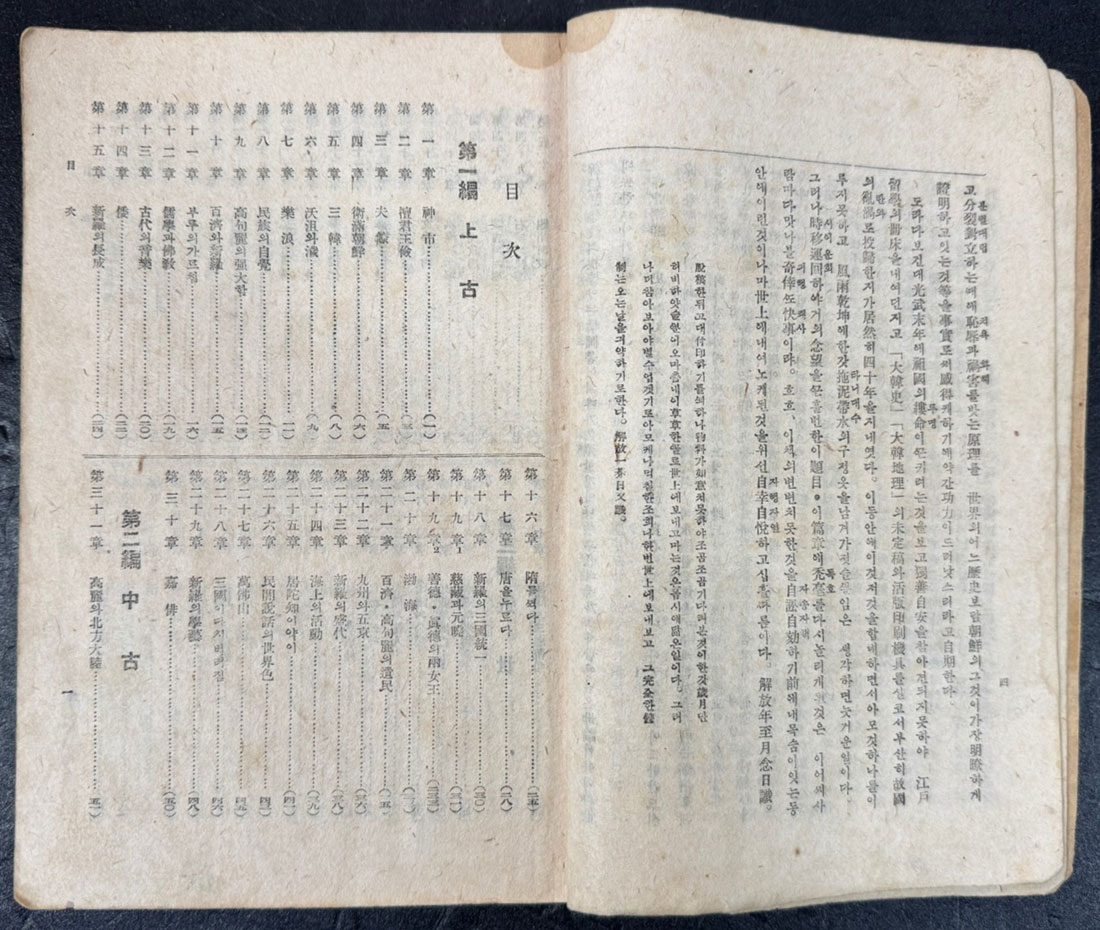 고 分裂對立하는때에 恥辱과 禍害를밧는 原理를 世界의어느歷史보담 朝鮮의그것이가장明瞭하게
證明하고잇는것等을事實로써感得케하기에약간功力이드러낫스려니라고自期한다.
도라다보건대光武末年에祖國의縷命이끈키려는것을보고獨善自安을참아견듸지못하야 江戶
留學의冊床을내여던지고 「大韓史」「大韓地理」의未定稿와活版印刷機具를실고서부산히故國
의亂渦로投歸한지가居然히四十年을지내엿다. 이동안에이것저것을합비하면서아모것하나를이
루지못하고 風雨乾坤에한갓拖泥帶水의구정옷을남겨가젓슬뿐임은 생각하면붓거운일이다.
그러나時移運回하야거의念望을끈흘만한이題目・이篇章에禿毫를다시놀리게된것은 이어찌사
람마다맛나볼奇倖또快事이랴. 호호, 이세의변변치못한것을自訟自劾하기前에내목숨이잇는동
안에이런것이나마世上에내여노케된것을위선自幸自悅하고십흘따름이다. 解放年至月念日識。
脫稿한뒤고대付印하기를꾀하나物料가如意치못하야조곰조곰기다려본것이한갓歲月만
허비하앗슬뿐이오마츰네이草草한꼴로世上에보내고마는것은몹시애닯은일이다. 그러
나더참아보아야별수업겟기로아모케나먹칠한조희나한번世上에보내보고 그完全한體
制는오는날을긔약하기로한다. 解放一年日又識。
四
目次
第一編 上古
第一章 神市 (一)
第二章 檀君王儉 (三)
第三章 夫餘 (五)
第四章 衛滿朝鮮 (六)
第五章 三韓 (八)
第六章 沃沮와濊 (九)
第七章 樂浪 (一一)
第八章 民族의自覺
第九章 高句麗의强大함
第十章 百濟와新羅 (一五)
第十一章 부루의가르침 (一六)
第十二章 儒學과佛敎 (一九)
第十三章 古代의音樂 (二〇)
第十四章 倭 (二二)
第十五章 新羅의長成 (二四)
第十六章 隋를꺽다 (二五)
第十七章 唐을누르다 (二八)
第十八章 新羅의三國統一 (三〇)
第十九章1 慈藏과元曉 (三一)
第十九章2 善德・眞德의兩女王 (三三)
第二十章 渤海
第二十一章 百濟・高句麗의遺民 (三五)
第二十二章 九州와五京 (三六)
第二十三章 新羅의盛代 (三八)
第二十四章 海上의活動 (三九)
第二十五章 居陀知이야이 (四一)
第二十六章 民間說話의世界色
第二十七章 萬佛山
第二十八章 三國이다시버러짐 (四六)
第二十九章 新羅의學藝 (四八)
第三十章 嘉俳 (五〇)
第二編 中古
第三十一章 高麗와北方大陸 (五一)
目次
一